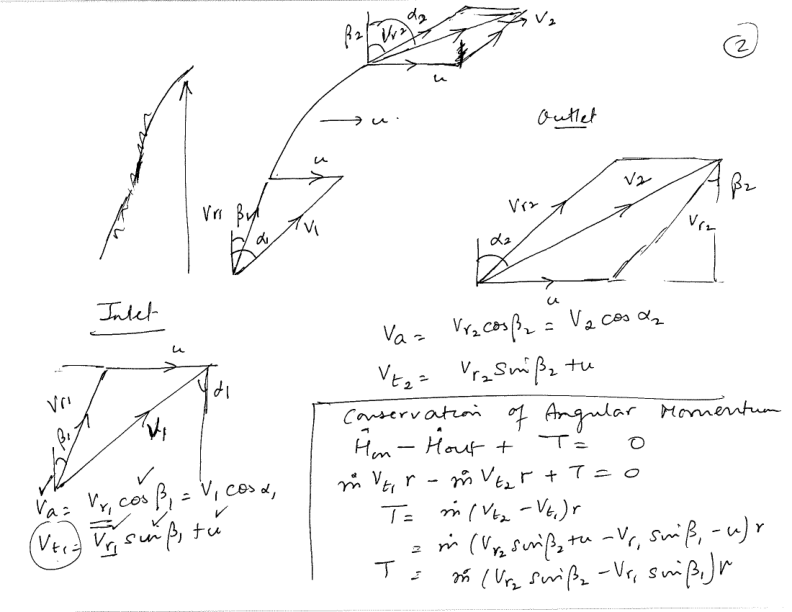 β₂ Vr2 α₂ V₂
u
②
→ u
Outlet
u
Vr1 β₁ α₁ V₁
α₂ Vr2 V₂ β₂
Vr2
u
Inlet
u
Vr1 β₁ V₁ α₁
Va = Vr₁ cos β₁ = V₁ cos α₁
Vt₁ = Vr₁ sin β₁ + u
Va = Vr₂ cos β₂ = V₂ cos α₂
Vt₂ = Vr₂ sin β₂ + u
Conservation of Angular Momentum
Ḣin − Ḣout + T = 0
ṁ Vt₁ r − ṁ Vt₂ r + T = 0
T = ṁ (Vt₂ − Vt₁) r
= ṁ (Vr₂ sin β₂ + u − Vr₁ sin β₁ − u) r
T = ṁ (Vr₂ sin β₂ − Vr₁ sin β₁) r